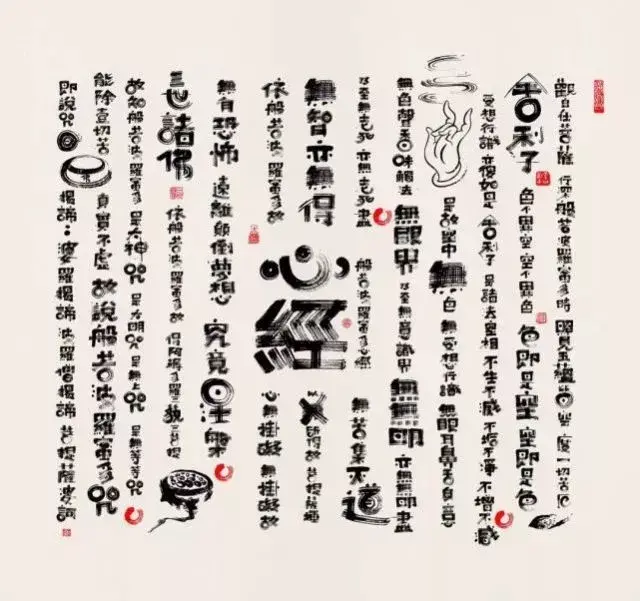 觀自在菩薩 行深般若波羅蜜多時 照見五蘊皆空 度一切苦厄
舍利子 色不異空 空不異色 色即是空 空即是色
受想行識 亦復如是 舍利子 是諸法空相 不生不滅 不垢不淨 不增不減
是故空中無色 無受想行識 無眼耳鼻舌身意
無色聲香味觸法 無眼界 乃至無意識界 無無明 亦無無明盡
乃至無老死 亦無老死盡
無苦集滅道
無智亦無得
以無所得故 菩提薩埵
依般若波羅蜜多故
心無掛礙 無掛礙故
般若波羅蜜多心經
心經
無有恐怖 遠離顛倒夢想 究竟涅槃
三世諸佛 依般若波羅蜜多故 得阿耨多羅三藐三菩提
故知般若波羅蜜多 是大神咒 是大明咒 是無上咒 是無等等咒
能除壹切苦 真實不虛 故說般若波羅蜜多咒
即說咒曰 揭諦 婆羅揭諦 波羅僧揭諦 菩提薩婆訶